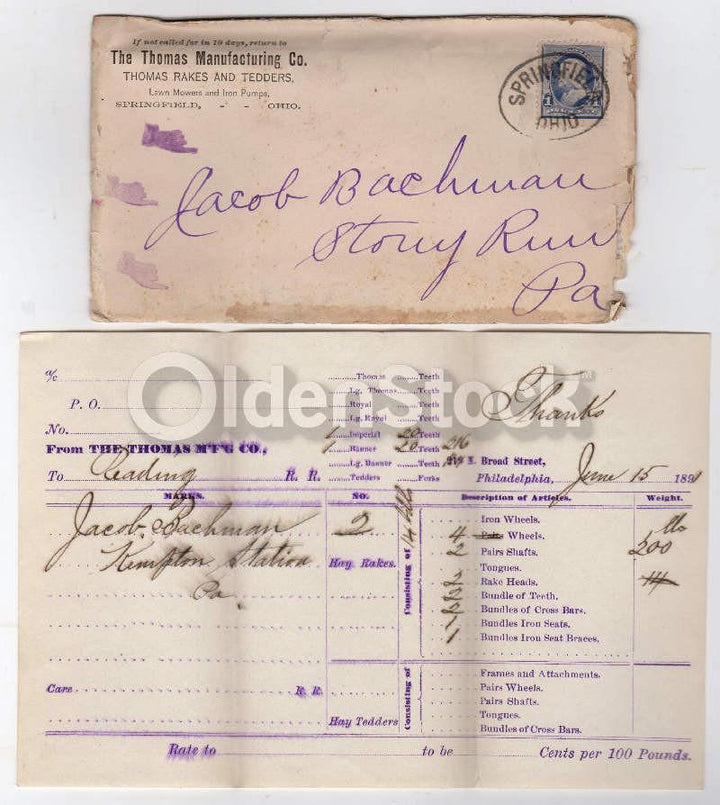 If not called for in 10 days, return to
The Thomas Manufacturing Co.
THOMAS RAKES AND TEDDERS,
Lawn Mowers and Iron Pumps,
SPRINGFIELD, - - OHIO.
SPRINGFIELD
OHIO
1 1
Jacob Bachman
Stony Run
Pa
OldenStock
Thanks
a/c
P. O.
No.
From THE THOMAS M'F'G CO.,
To Reading R. R.
Thomas Teeth
Lg. Thomas Teeth
Royal Teeth
Lg. Royal Teeth
1 Imperial 20 Teeth
1 Banner 20 Teeth
Lg. Banner Teeth
Tedders Forks
216
N. Broad Street,
Philadelphia, June 15 1891
MARKS. NO. Description of Articles. Weight.
Jacob Bachman 2
Kempton Station Hay Rakes.
Pa.
Consisting of
Iron Wheels.
4 Wheels. lb
2 Pairs Shafts. 200
Tongues.
2 Rake Heads.
2 Bundle of Teeth.
2 Bundles of Cross Bars.
Bundles Iron Seats.
1 Bundles Iron Seat Braces.
Consisting of
Frames and Attachments.
Care R. R. Pairs Wheels.
Pairs Shafts.
Hay Tedders Tongues.
Bundles of Cross Bars.
Rate to to be Cents per 100 Pounds.